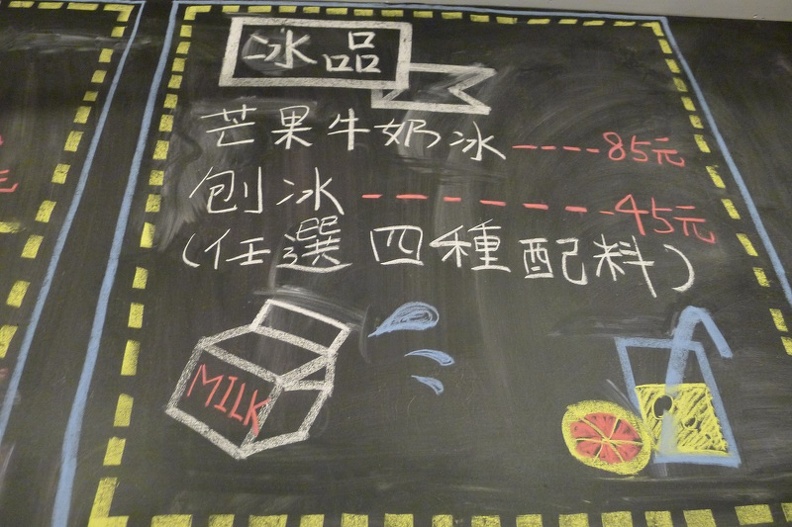 冰品
芒果牛奶冰----85元
刨冰-------45元
(任選四種配料)
MILK